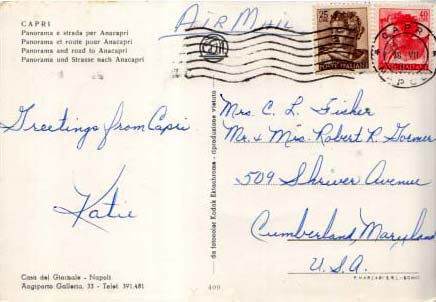 CAPRI
Panorama e strada per Anacapri
Panorama et route pour Anacapri
Panorama and road to Anacapri
Panorama und Strasse nach Anacapri
AIR MAIL
25
POSTE ITALIANE
40
POSTE ITALIANE
CAPRI
Greetings from Capri
Katie
Mrs. C. L. Fisher
Mr. & Mrs. Robert R. Gormer
509 Shriver Avenue
Cumberland, Maryland
U.S.A.
da fotocolor Kodak Ektachrome - riproduzione vietata
Casa del Giornale - Napoli
Angiporto Galleria, 33 - Telef. 391.481
409